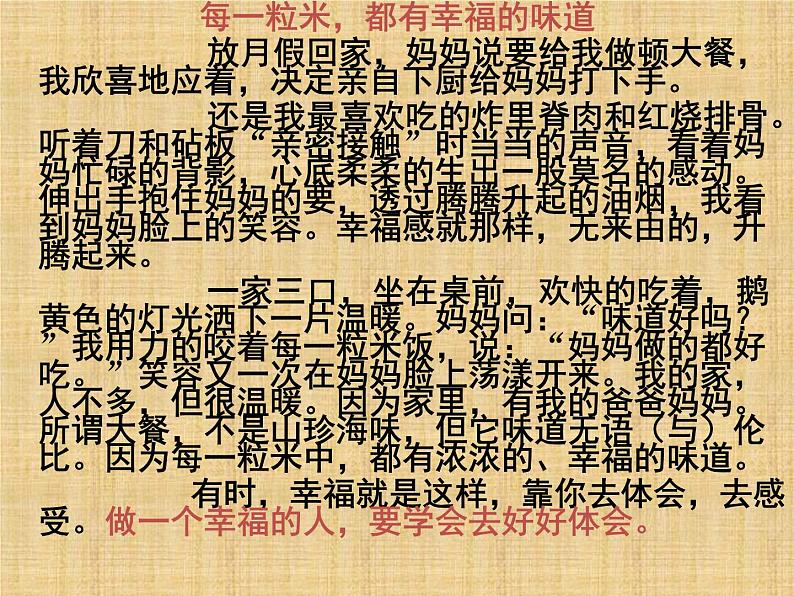 每一粒米，都有幸福的味道
放月假回家，妈妈说要给我做顿大餐，
我欣喜地应着，决定亲自下厨给妈妈打下手。
还是我最喜欢吃的炸里脊肉和红烧排骨。
听着刀和砧板“亲密接触”时当当的声音，看着妈
妈忙碌的背影，心底柔柔的生出一股莫名的感动。
伸出手抱住妈妈的要，透过腾腾升起的油烟，我看
到妈妈脸上的笑容。幸福感就那样，无来由的，升
腾起来。
一家三口，坐在桌前，欢快的吃着，鹅
黄色的灯光洒下一片温暖。妈妈问：“味道好吗？
”我用力的咬着每一粒米饭，说：“妈妈做的都好
吃。”笑容又一次在妈妈脸上荡漾开来。我的家，
人不多，但很温暖。因为家里，有我的爸爸妈妈。
所谓大餐，不是山珍海味，但它味道无语（与）伦
比。因为每一粒米中，都有浓浓的、幸福的味道。
有时，幸福就是这样，靠你去体会，去感
受。做一个幸福的人，要学会去好好体会。